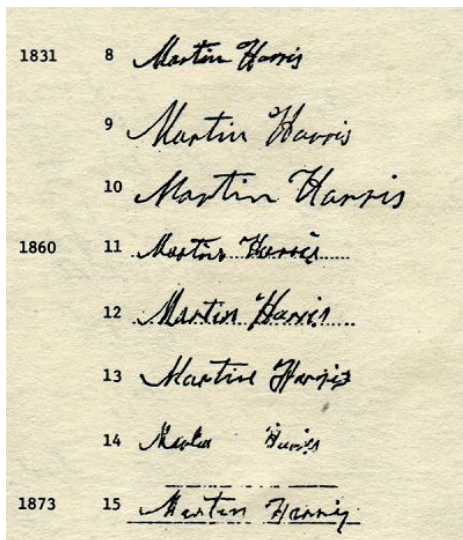 1831 8 Martin Harris
9 Martin Harris
10 Martin Harris
1860 11 Martin Harris
12 Martin Harris
13 Martin Harris
14 Martin Harris
1873 15 Martin Harris